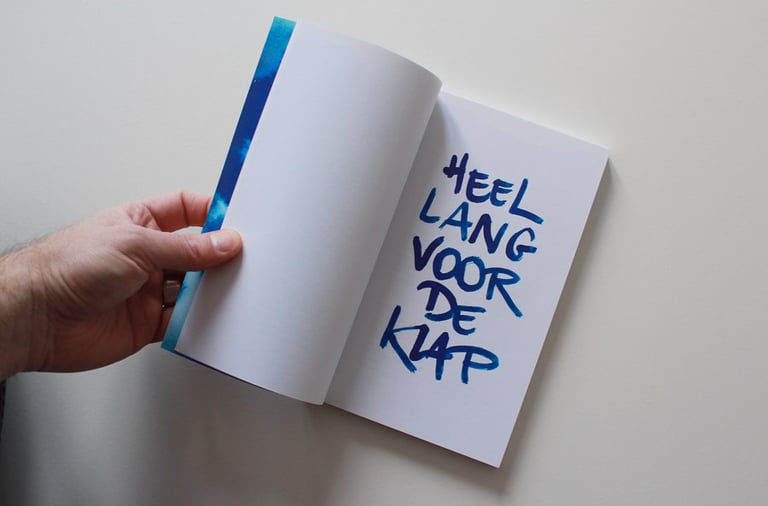 HEEL
LANG
VOOR
DE
KLAP